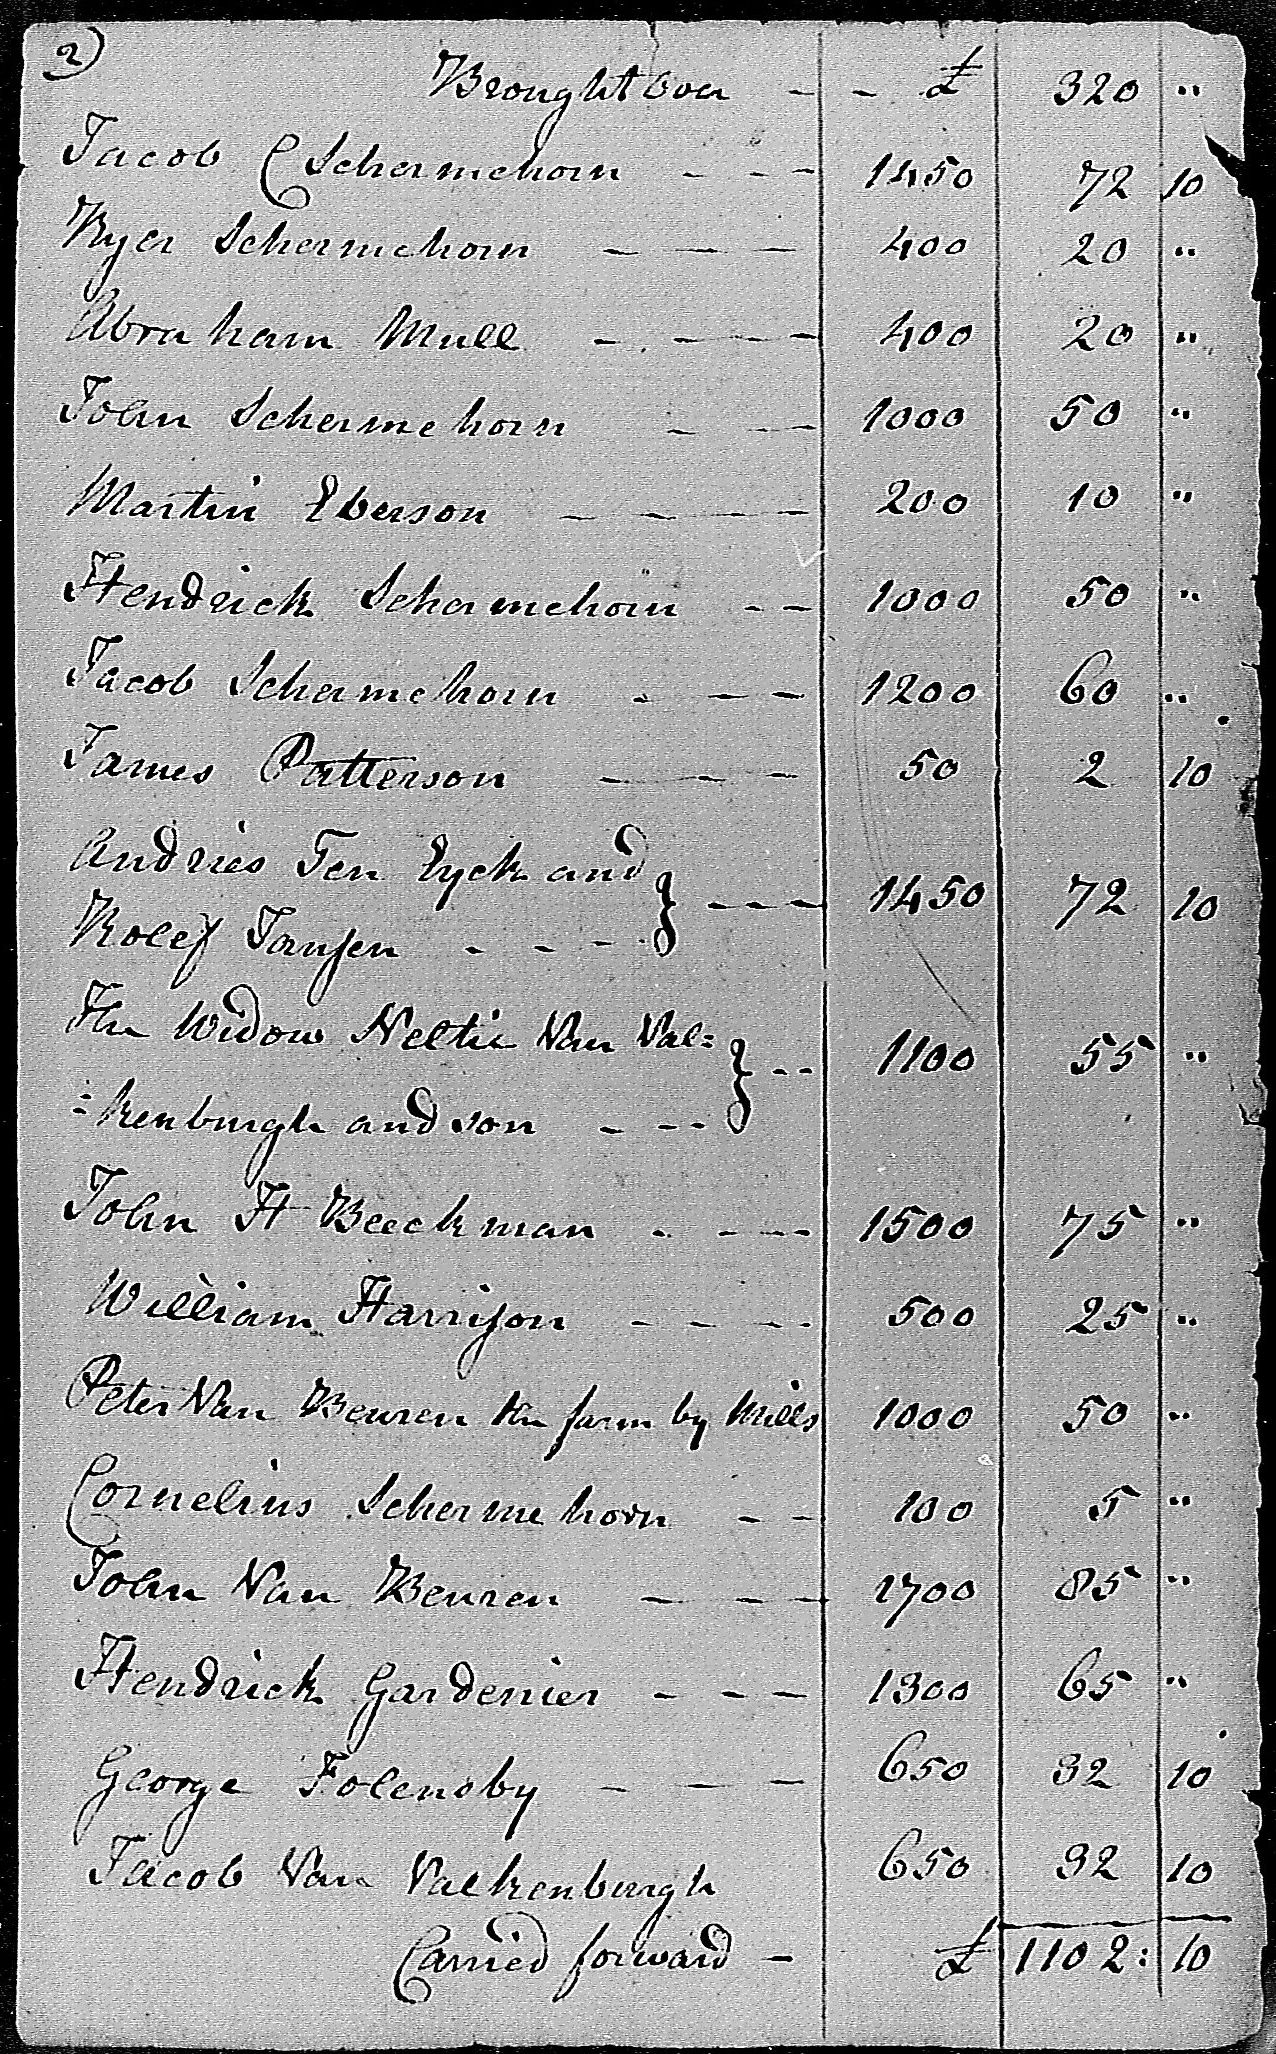 2)
Brought Over - - £ 320 "
Jacob C Schermehorn - - - 1450 72 10
Ryer Schermehorn - - - 400 20 "
Abraham Mull - - - - 400 20 "
John Schermehorn - - - 1000 50 "
Martin Eberson - - - - 200 10 "
Hendrick Schermehorn - - 1000 50 "
Jacob Schermehorn - - - 1200 60 "
James Patterson - - - 50 2 10
Andries Ten Eyck and
Rolef Jansen - - - - } - - - 1450 72 10
The Widow Neltie Van Val=
=kenburgh and son - - - } - - 1100 55 "
John H Beeckman - - - - 1500 75 "
William Harrison - - - - 500 25 "
Peter Van Beuren the farm by Mills 1000 50 "
Cornelius Schermehorn - - 100 5 "
John Van Beuren - - - 1700 85 "
Hendrick Gardenier - - - 1300 65 "
George Folensby - - - 650 32 10
Jacob Van Valkenburgh 650 32 10
Carried forward - £ 1102: 10